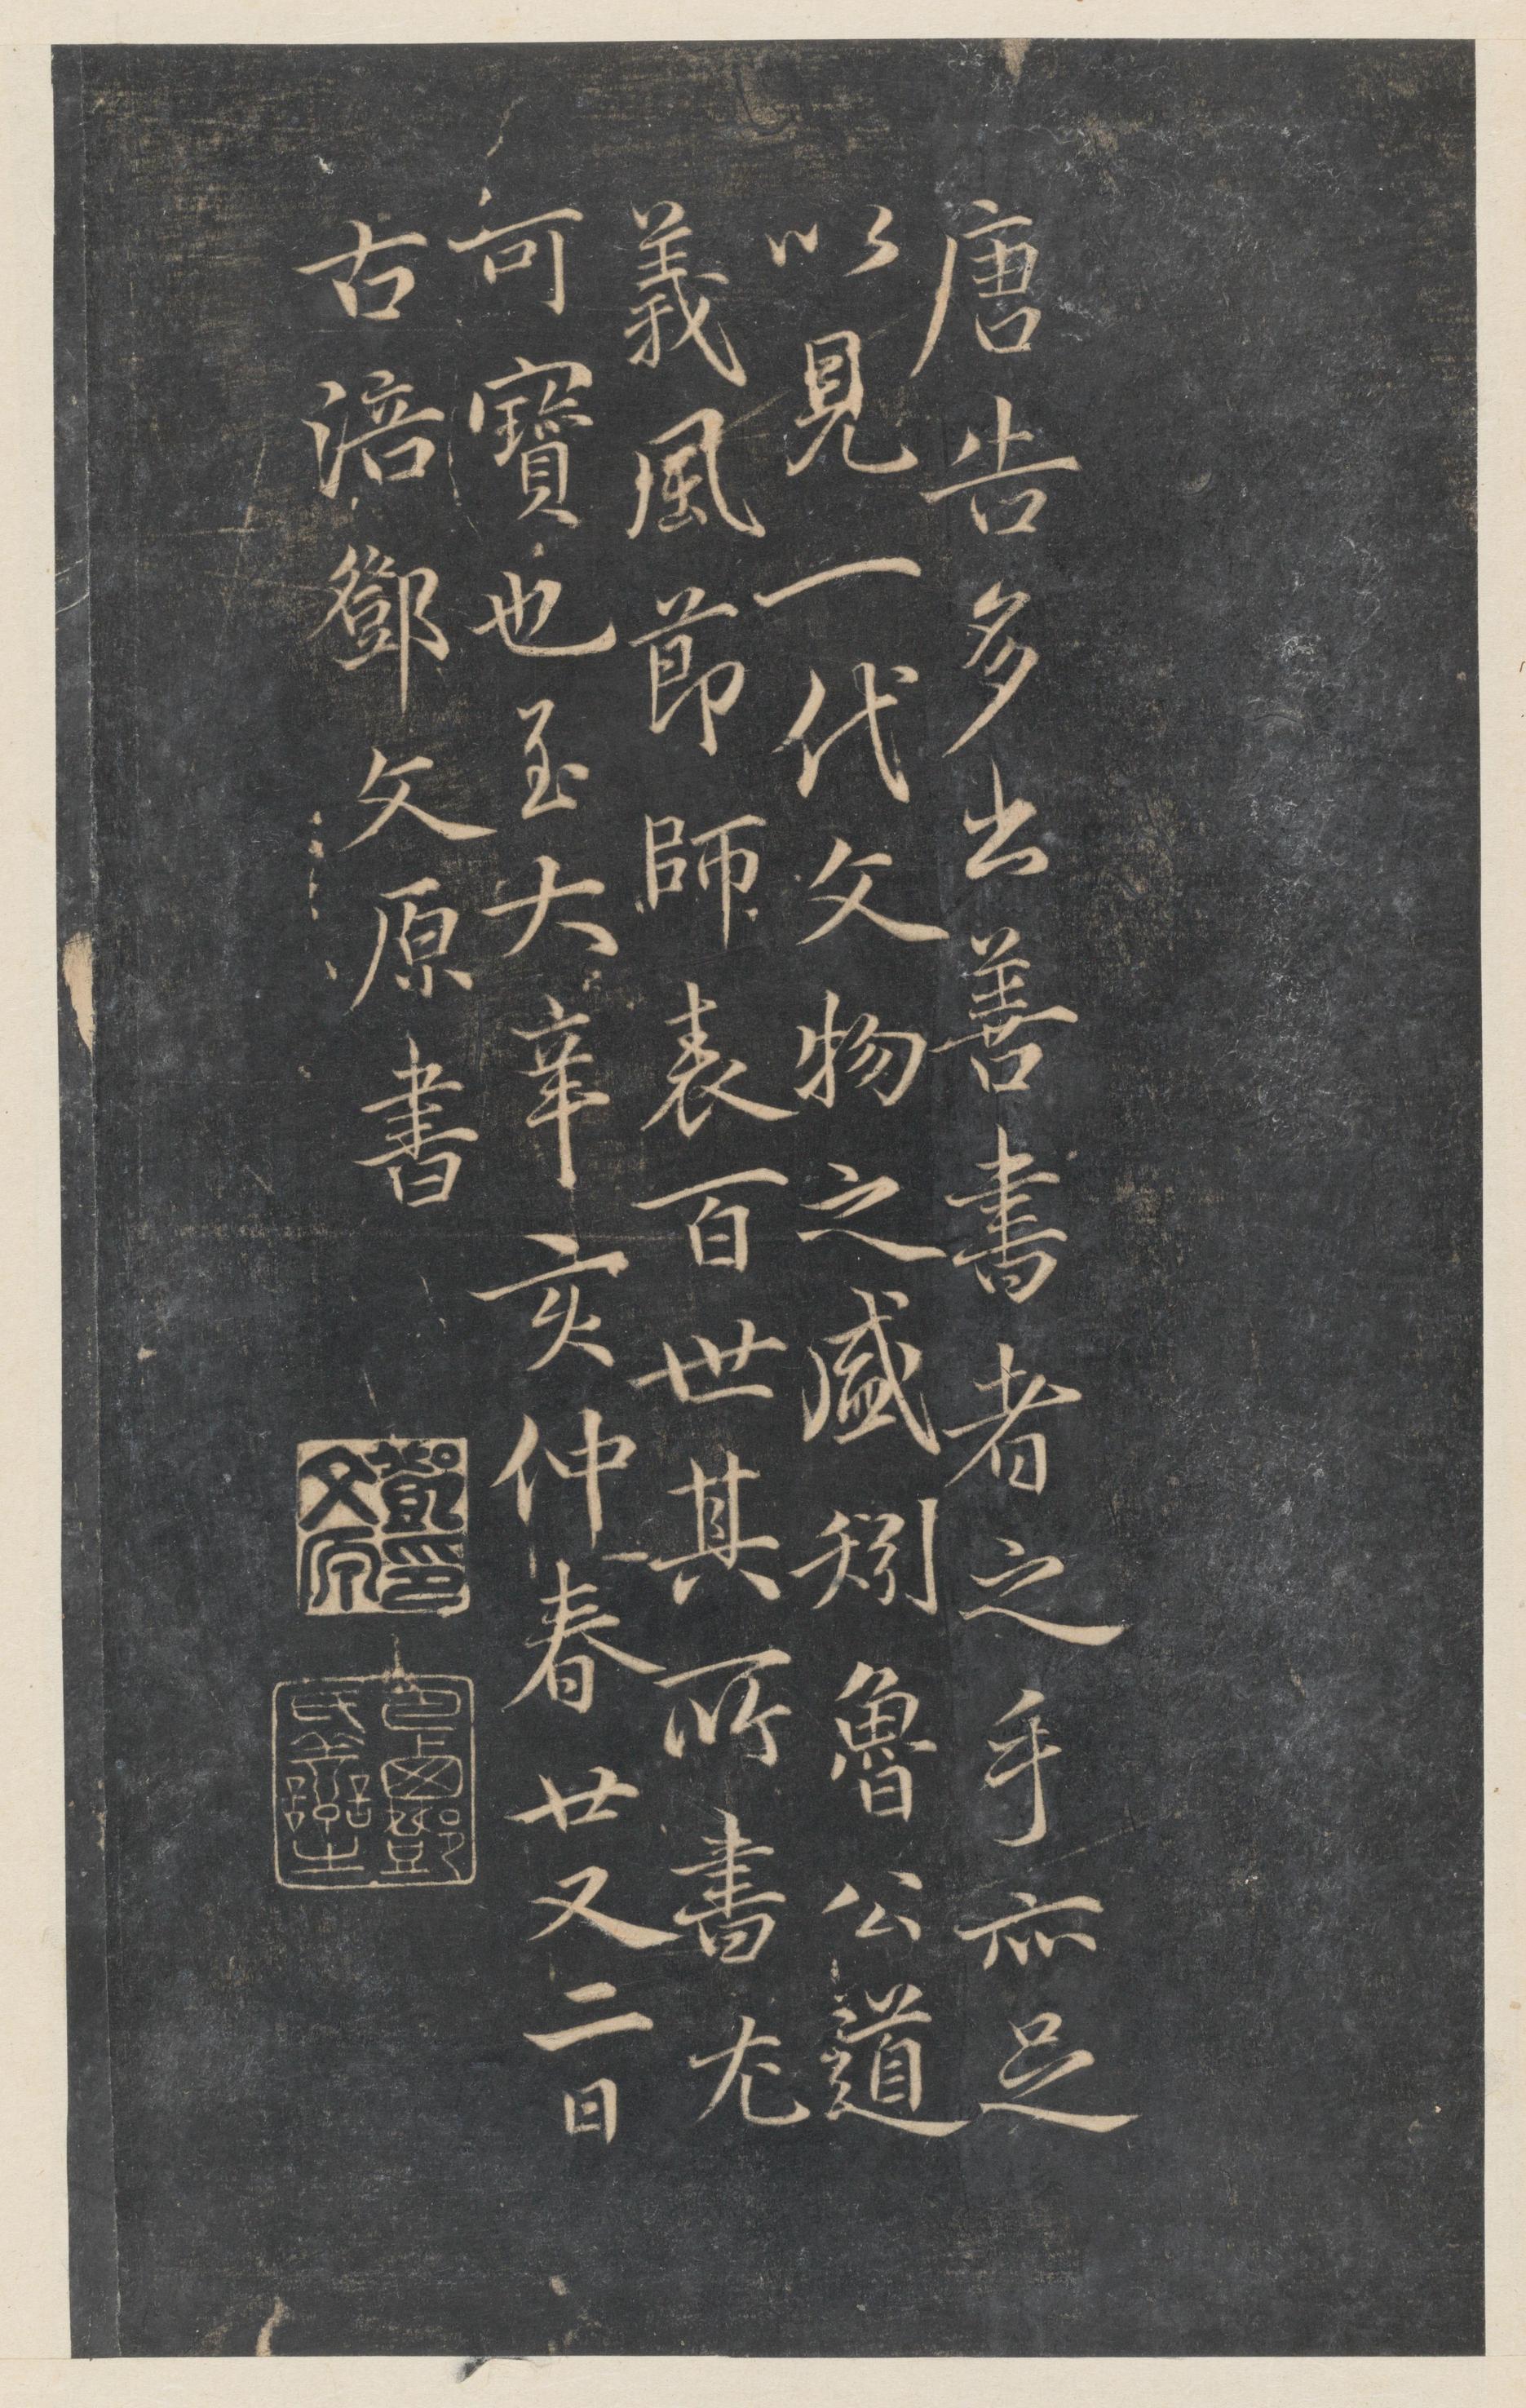 唐告多出善書者之手亦足
以見一代文物之盛矧魯公道
義風節師表百世其所書尤
可寶也至大辛亥仲春廿又二日
古涪鄧文原書
鄧文原印
巴西鄧氏善之